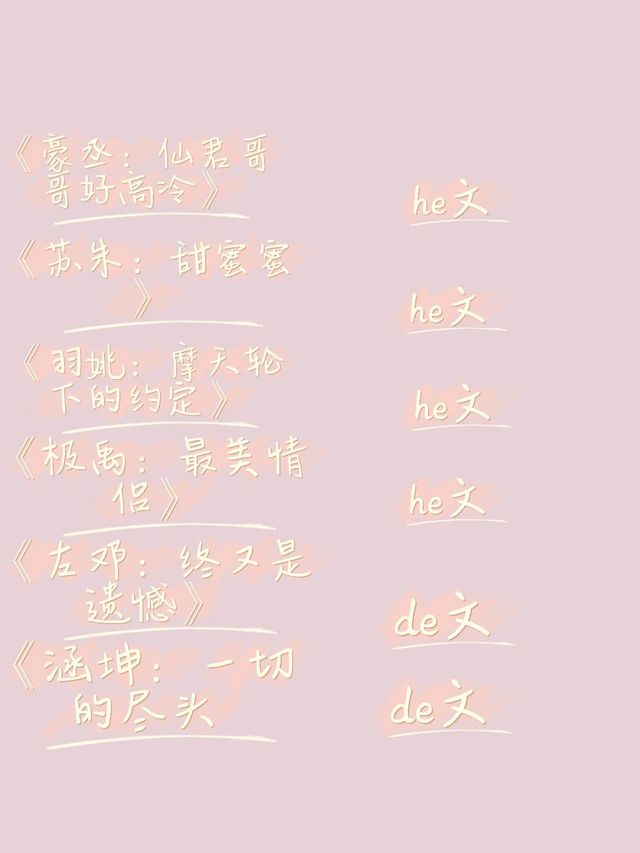 《豪丞：仙君哥
哥好高冷》
he文
《苏朱：甜蜜蜜
》
he文
《羽姚：摩天轮
下的约定》
he文
《极禹：最美情
侣》
he文
《左邓：终又是
遗憾》
de文
《涵坤：一切
的尽头
de文